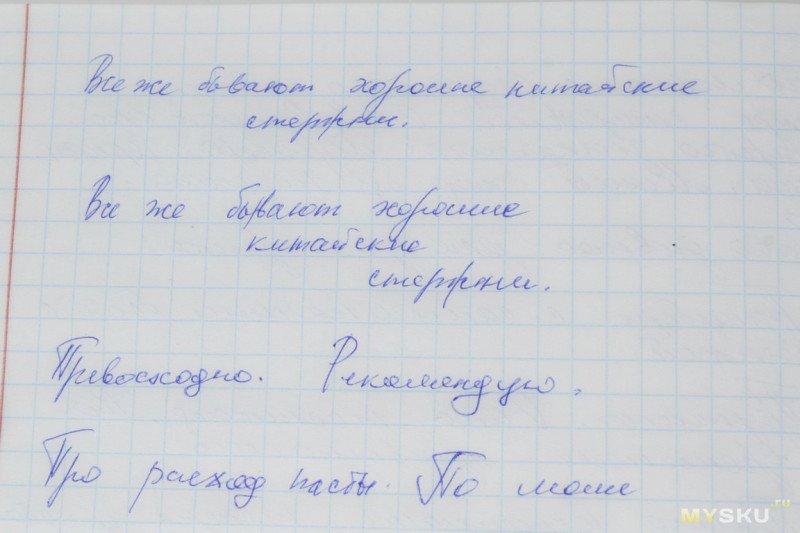 Все же бывают хорошие китайские
стержни.
Все же бывают хорошие
китайские
стержни.
Превосходно. Рекомендую.
Про расход пасты. По моим
MYSKU.ru